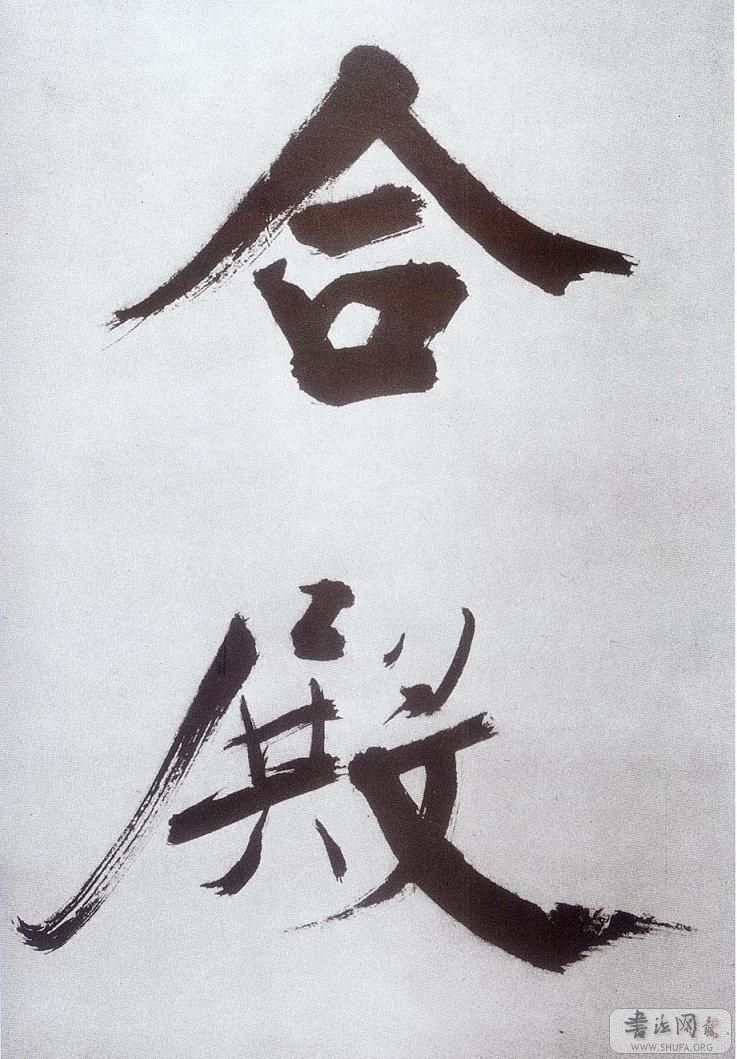 合
殿
書法网
WWW.SHUFA.ORG